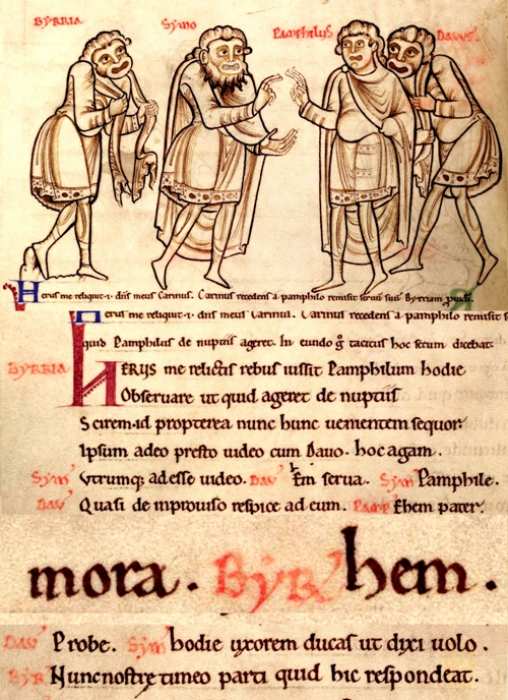 BYRRIA SYMO PAMPHILUS DAVUS
Herus me reliquit .i. dns meus Carinus. Carinus recedens a pamphilo remisit seruu suu Byrriam
Herus me reliquit .i. dns meus Carinus. Carinus recedens a pamphilo remisit s
quid Pamphilus de nuptiis ageret. In eundo g tacitus hoc secum dicebat.
BYRRIA HERUS me relictis rebus iussit Pamphilum hodie
Obseruare ut quid ageret de nuptiis
Scirem. id propterea nunc hunc uenientem sequor.
Ipsum adeo presto uideo cum Dauo. hoc agam.
Sym Vtrumq; adesse uideo. Dau Em serua. Sym Pamphile.
Dau Quasi de improuiso respice ad eum. Pamp Ehem pater.
mora. Byr hem.
Dau Probe. Sym hodie uxorem ducas ut dixi uolo.
Byr Nunc nostre timeo parti quid hic respondeat.